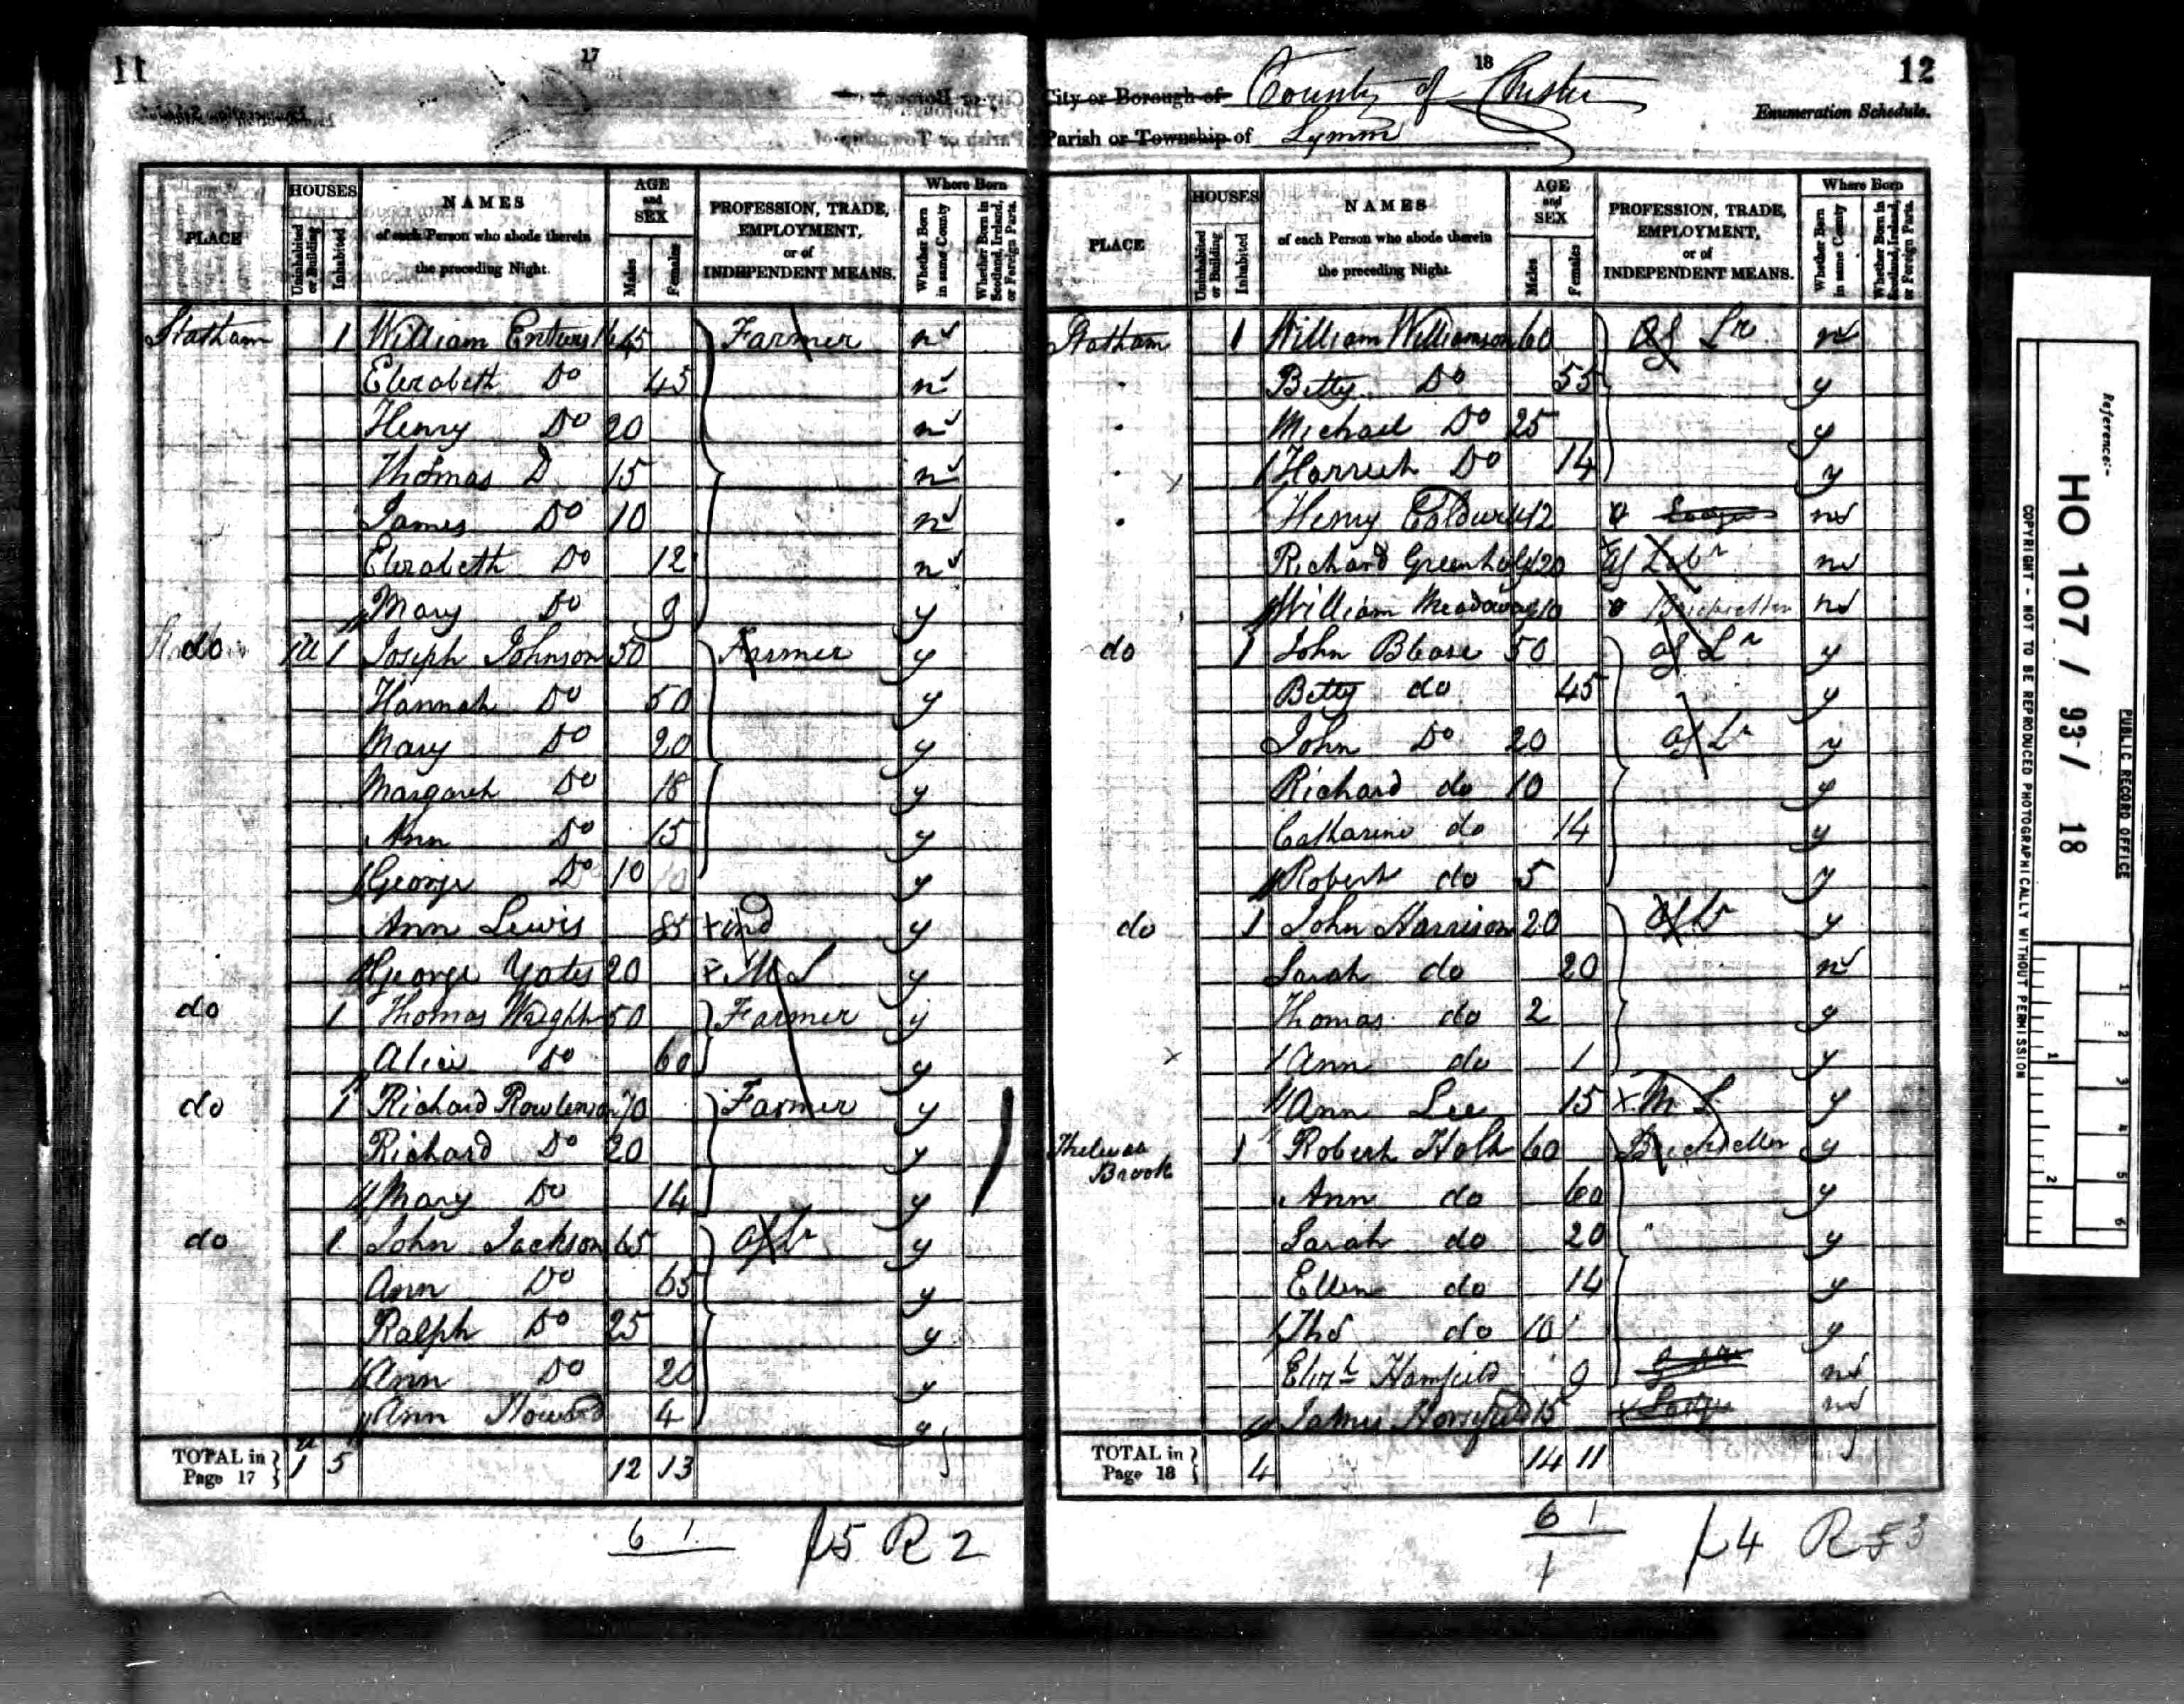 17
11
PLACE
HOUSES
Uninhabited or Building
Inhabited
NAMES
of each Person who abode therein
the preceding Night.
AGE
and
SEX
Males
Females
PROFESSION, TRADE,
EMPLOYMENT,
or of
INDEPENDENT MEANS.
Where Born
Whether Born in same County
Whether Born in Scotland, Ireland, or Foreign Parts.
Statham 1 William 45 Farmer n
Elizabeth Do 45 n
Henry Do 20 n
Thomas D 15 n
James Do 10 n
Elizabeth Do 12 n
Mary Do 9 y
do 1u 1 Joseph Johnson 50 Farmer y
Hannah Do 50 y
Mary Do 20 y
Margaret Do 18 y
Ann Do 15 y
George Do 10 y
Ann Lewis 85 ind y
George Yates 20 M S y
do 1 Thomas Wright 50 Farmer y
Alice Do 60 y
do 1 Richard Rowlenson 70 Farmer y
Richard Do 20 y
Mary Do 14 y
do 1 John Jackson 65 Ag Lr y
Ann Do 65 y
Ralph Do 25 y
Ann Do 20 y
Ann Howard 4 y
TOTAL in Page 17 1u 5 12 13
6 1
5 R 2
18
12
City or Borough of County of Chester
Enumeration Schedule.
Parish or Township of Lymm
PLACE
HOUSES
Uninhabited or Building
Inhabited
NAMES
of each Person who abode therein
the preceding Night.
AGE
and
SEX
Males
Females
PROFESSION, TRADE,
EMPLOYMENT,
or of
INDEPENDENT MEANS.
Where Born
Whether Born in same County
Whether Born in Scotland, Ireland, or Foreign Parts.
Statham 1 William Williamson 60 Ag Lr n
Betty Do 55 y
Michael Do 25 y
Harriet Do 14 y
Henry 12 n
Richard 20 Ag Labr n
William 10 n
do 1 John Blease 50 Ag Lr y
Betty do 45 y
John Do 20 Ag Lr y
Richard do 10 y
Catharine do 14 y
Robert do 5 y
do 1 John Harrison 20 Ag Lr y
Sarah do 20 n
Thomas do 2 y
Ann do 1 y
Ann Lee 15 M S y
Brook 1 Robert Holt 60 y
Ann do 60 y
Sarah do 20 " y
Ellen do 14 y
Thos do 10 y
Elizh 9 n
James 15 n
TOTAL in Page 18 4 14 11
6 1
1
4 R 3
Reference:-
HO 107 / 93 / 18
PUBLIC RECORD OFFICE
COPYRIGHT - NOT TO BE REPRODUCED PHOTOGRAPHICALLY WITHOUT PERMISSION
1 2 3 4 5 6
1 2